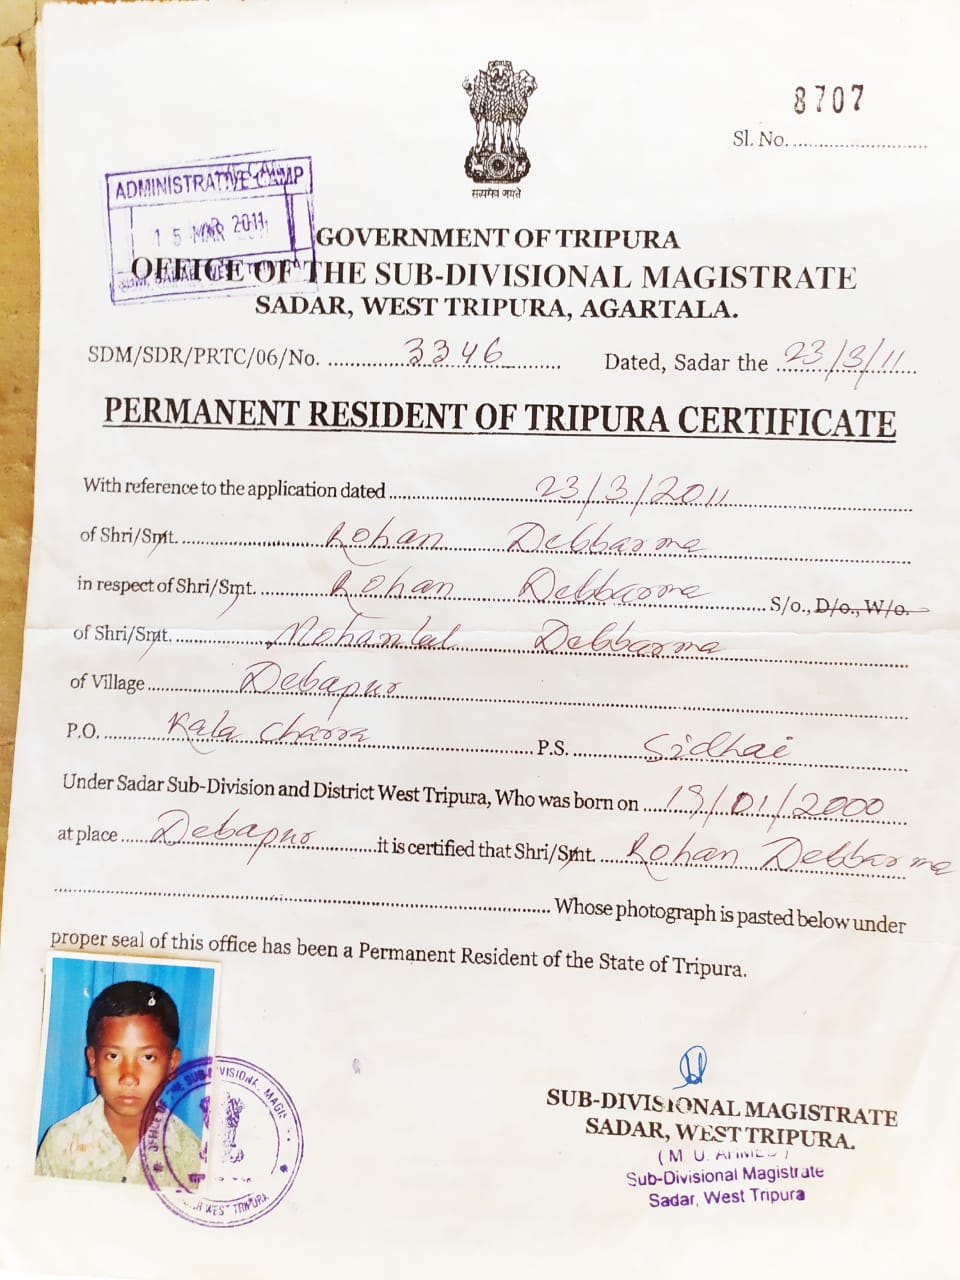 8707
Sl. No. ........................
सत्यमेव जयते
ADMINISTRATIVE CAMP
15 MAR 2011
GOVERNMENT OF TRIPURA
OFFICE OF THE SUB-DIVISIONAL MAGISTRATE
SADAR, WEST TRIPURA, AGARTALA.
SDM/SDR/PRTC/06/No. 3346 Dated, Sadar the 23/3/11
PERMANENT RESIDENT OF TRIPURA CERTIFICATE
With reference to the application dated 23/3/2011
of Shri/Smt. Rohan Debbarma
in respect of Shri/Smt. Rohan Debbarma S/o., D/o., W/o.
of Shri/Smt. Mohanlal Debbarma
of Village Debapur
P.O. Kala Charra P.S. Sidhai
Under Sadar Sub-Division and District West Tripura, Who was born on 19/01/2000
at place Debapur it is certified that Shri/Smt. Rohan Debbarma
Whose photograph is pasted below under
proper seal of this office has been a Permanent Resident of the State of Tripura.
SUB-DIVISIONAL MAGISTRATE
SADAR, WEST TRIPURA.
(M U. AHMED)
Sub-Divisional Magistrate
Sadar, West Tripura
OFFICE OF THE SUB-DIVISIONAL MAGIS
WEST TRIPURA